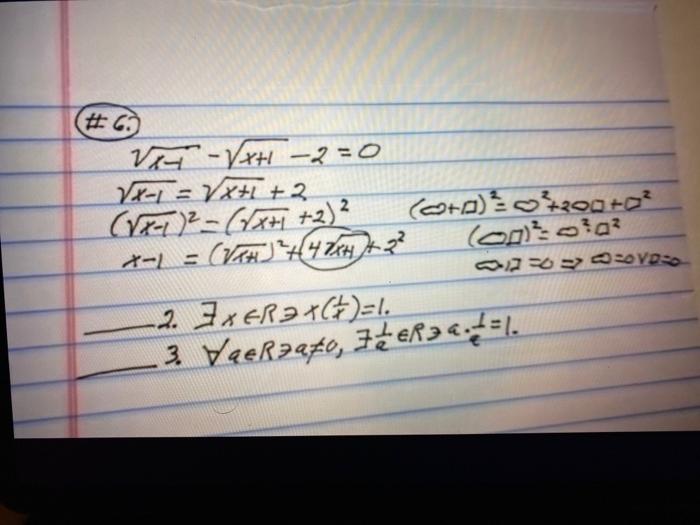 #6.
√x-1 - √x+1 - 2 = 0
√x-1 = √x+1 + 2
(√x-1)² = (√x+1 + 2)²
(∞+□)² = ∞²+2∞□+□²
x-1 = (√x+1)² + 4√x+1 + 2²
(∞□)² = ∞²·□²
∞·□=0 ⇒ ∞=0 ∨ □=0
2. ∃x∈R∋x(1/x)=1.
3. ∀a∈R∋a≠0, ∃1/a∈R∋a·1/a=1.